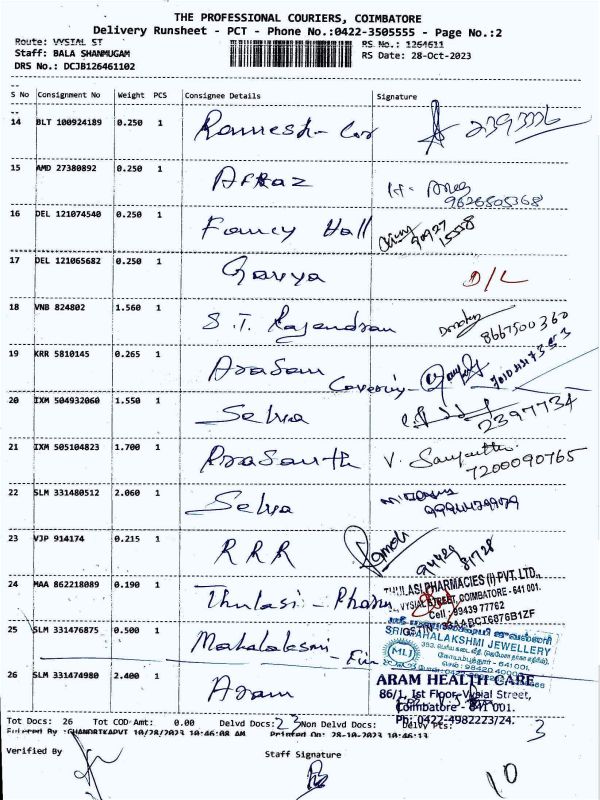 THE PROFESSIONAL COURIERS, COIMBATORE
Delivery Runsheet - PCT - Phone No.:0422-3505555 - Page No.:2
Route: VYSIAL ST
RS No.: 1264611
Staff: BALA SHANMUGAM
RS Date: 28-Oct-2023
DRS No.: DCJB126461102
S No Consignment No Weight PCS Consignee Details Signature
14 BLT 100924189 0.250 1 Ramesh - Car 2393336
15 AMD 27380892 0.250 1 Afraz
9626505368
16 DEL 121074540 0.250 1 Fancy Hall
90927
15558
17 DEL 121065682 0.250 1 Gavya D/L
18 VNB 824802 1.560 1 S.T. Rajendran
8667500360
19 KRR 5810145 0.265 1 Arasam Covering
20 IXM 504932060 1.550 1 Selva
2397734
21 IXM 505104823 1.700 1 Prasanth V.
7200090765
22 SLM 331480512 2.060 1 Selva
23 VJP 914174 0.215 1 RRR
94429
81728
24 MAA 862218089 0.190 1 Thulasi - Pharm
THULASI PHARMACIES (I) PVT. LTD.,
VYSIAL STREET, COIMBATORE - 641 001.
Cell : 89439 77762
25 SLM 331476875 0.500 1 Mahalaksmi - Fin
SRI MAHALAKSHMI JEWELLERY
MLJ
26 SLM 331474980 2.400 1 Aram
ARAM HEALTH CARE
86/1, Ist Floor, Vysial Street,
Coimbatore - 641 001.
Ph: 0422-4982223/24.
Tot Docs: 26 Tot COD Amt: 0.00 Delvd Docs: 23 Non Delvd Docs: Delvy Pts: 3
Entered By :CHANDRIKAPVT 10/28/2023 10:46:08 AM Printed On: 28-10-2023 10:46:13
Verified By Staff Signature
10